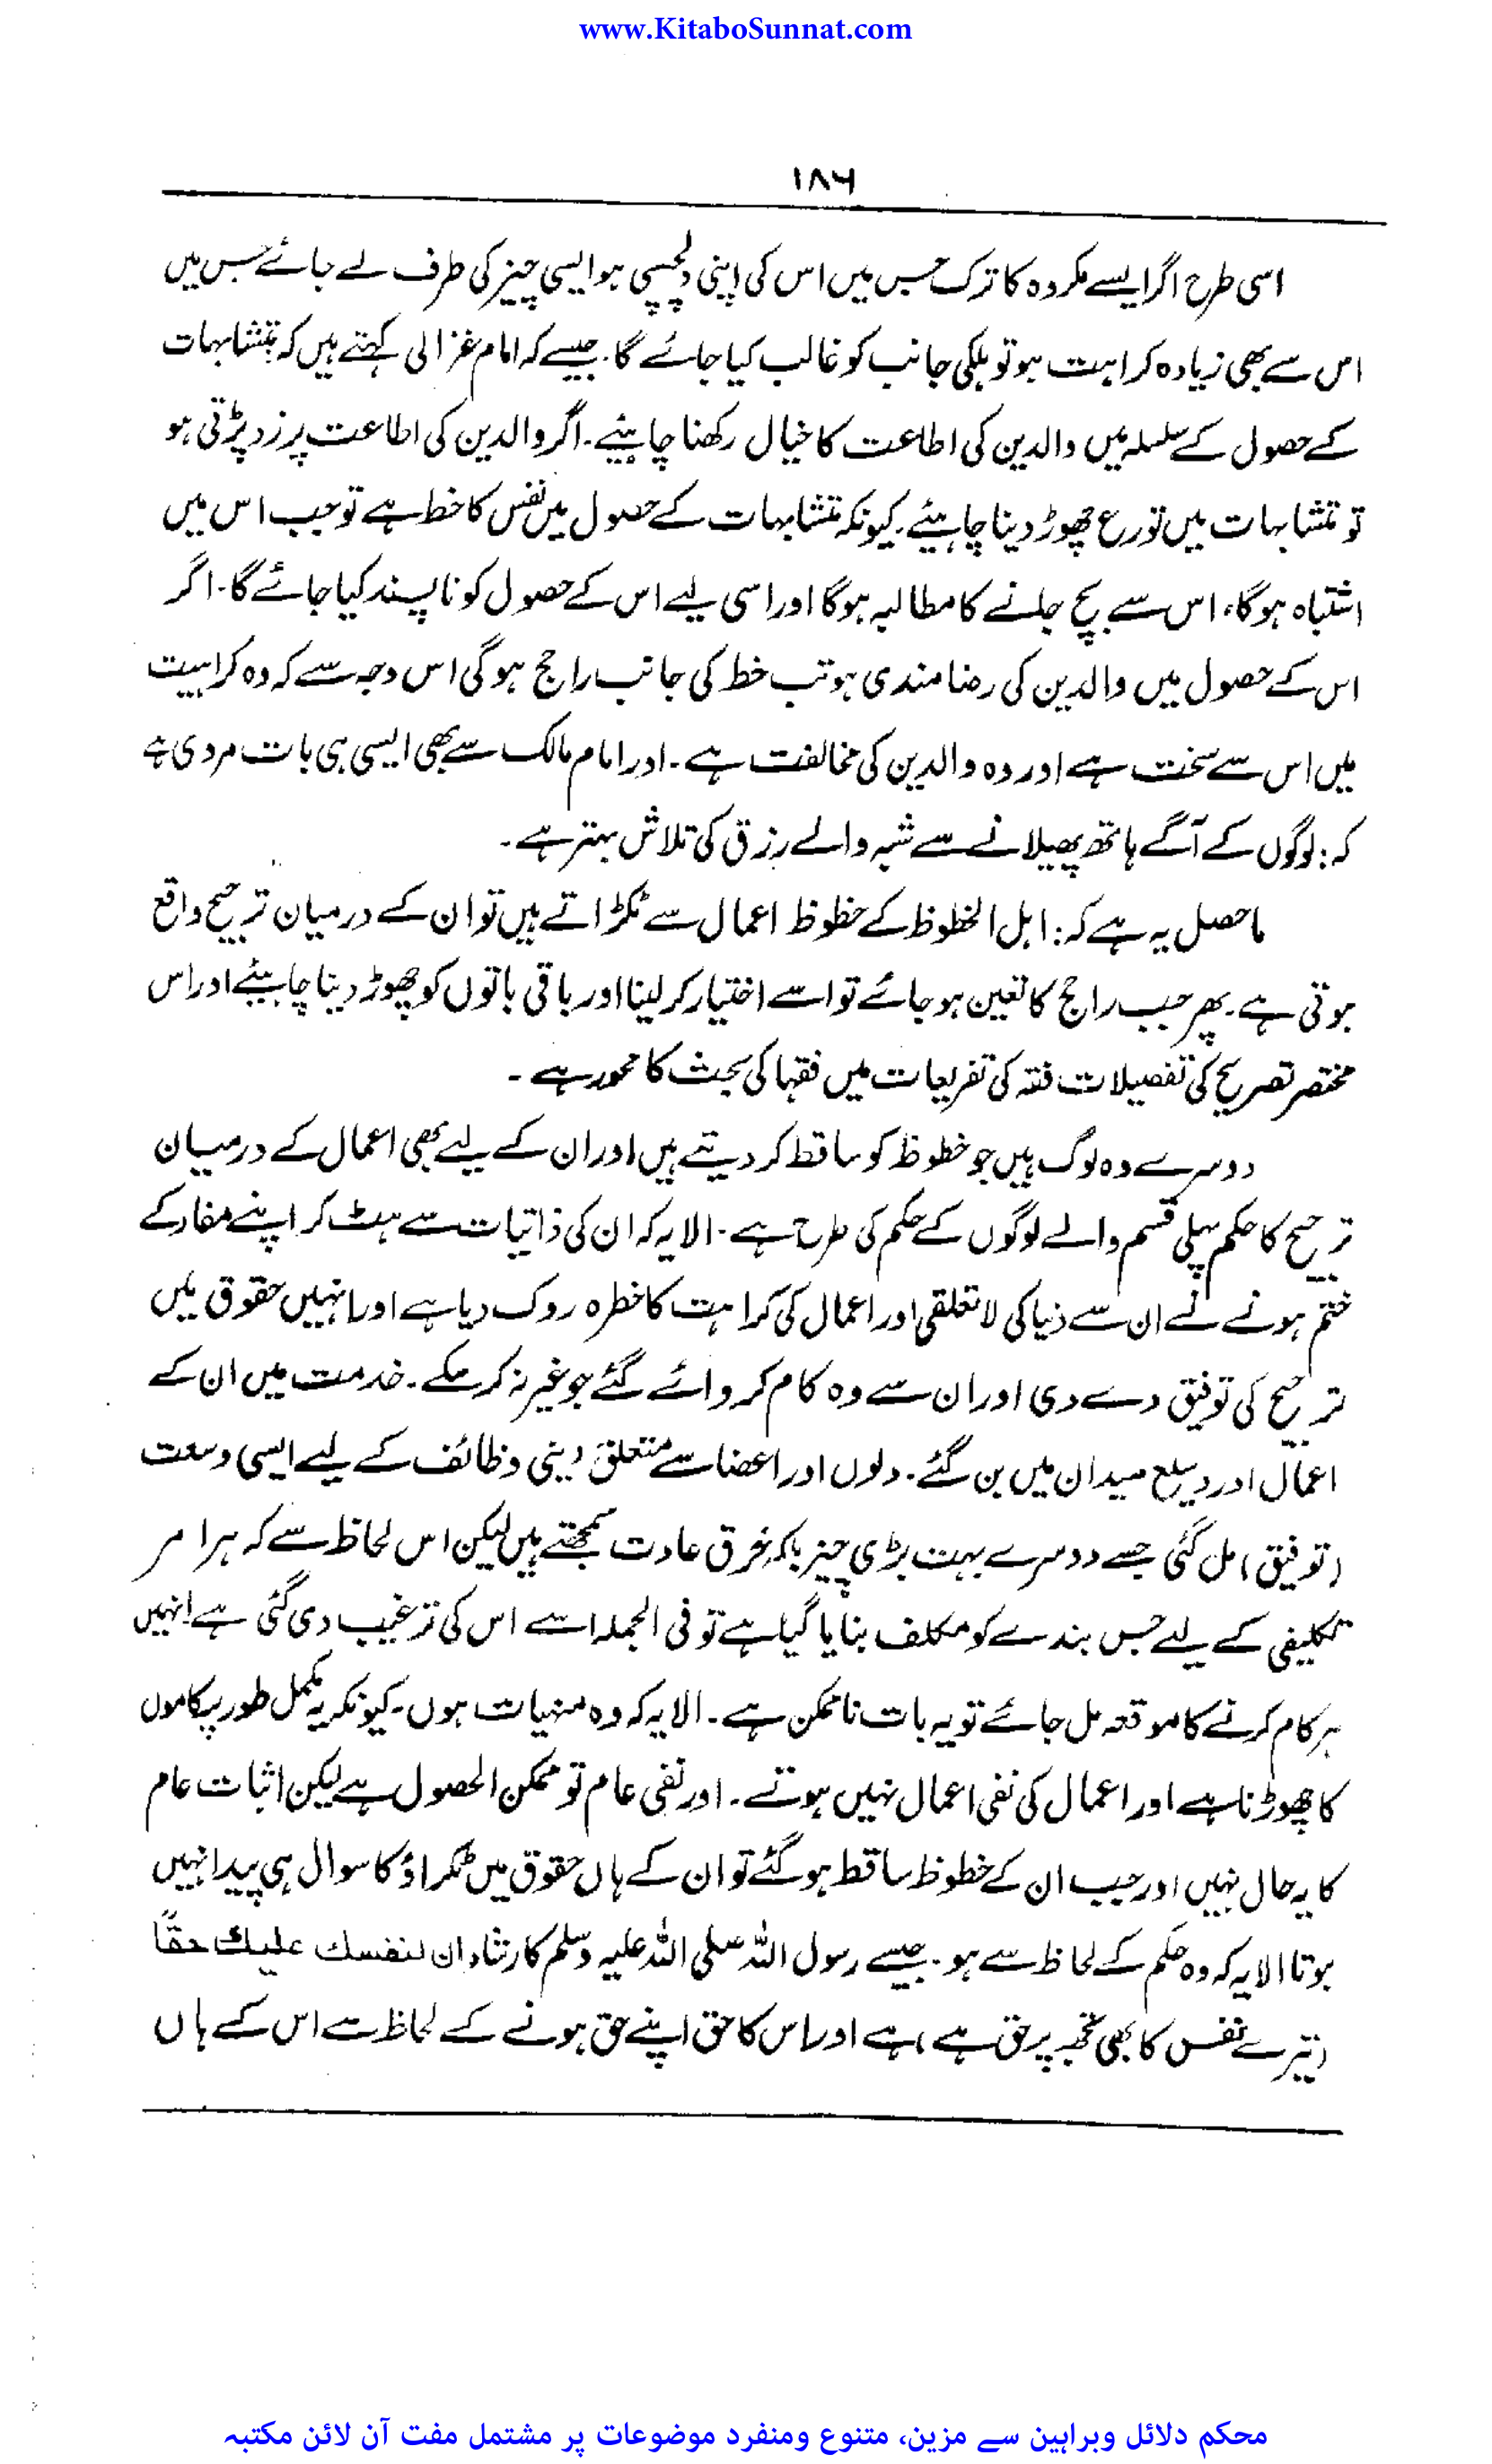 www.KitaboSunnat.com
۱۸۶
اسی طرح اگر ایسے مکروہ کا ترک جس میں اس کی اپنی دلچسپی ہو ایسی چیز کی طرف لے جائے جس میں
اس سے بھی زیادہ کراہت ہو تو ہلکی جانب کو غالب کیا جائے گا۔ جیسے کہ امام غزالی کہتے ہیں کہ متشابہات
کے حصول کے سلسلہ میں والدین کی اطاعت کا خیال رکھنا چاہیئے۔ اگر والدین کی اطاعت پر زد پڑتی ہو
تو متشابہات میں تورع چھوڑ دینا چاہیئے۔ کیونکہ متشابہات کے حصول میں نفس کا خط ہے تو جب اس میں
اشتباہ ہوگا، اس سے بچ جانے کا مطالبہ ہوگا اور اسی لیے اس کے حصول کو ناپسند کیا جائے گا۔ اگر
اس کے حصول میں والدین کی رضامندی ہو تب خط کی جانب راجح ہوگی اس وجہ سے کہ وہ کراہیت
میں اس سے سخت ہے اور وہ والدین کی مخالفت ہے۔ اور امام مالک سے بھی ایسی ہی بات مردی ہے
کہ: لوگوں کے آگے ہاتھ پھیلانے سے شبہ والے رزق کی تلاش بہتر ہے۔
ماحصل یہ ہے کہ: اہل الخطوظ کے خطوظ اعمال سے ٹکڑاتے ہیں تو ان کے درمیان ترجیح واقع
ہوتی ہے۔ پھر جب راجح کا تعین ہو جائے تو اسے اختیار کر لینا اور باقی باتوں کو چھوڑ دینا چاہیئے اور اس
مختصر تصریح کی تفصیلات فقہ کی تفریعات میں فقہا کی بحث کا محور ہے۔
دوسرے وہ لوگ ہیں جو خطوظ کو ساقط کر دیتے ہیں اور ان کے لیے بھی اعمال کے درمیان
ترجیح کا حکم پہلی قسم والے لوگوں کے حکم کی طرح ہے۔ الا یہ کہ ان کی ذاتیات سے ہٹ کر اپنے مفاد کے
ختم ہونے نے ان سے دنیا کی لاتعلقی اور اعمال کی کراہت کا خطرہ روک دیا ہے اور انہیں حقوق میں
ترجیح کی توفیق دے دی اور ان سے وہ کام کروائے گئے جو غیر نہ کر سکے۔ خدمت میں ان کے
اعمال اور وسیع میدان میں بن گئے۔ دلوں اور اعضا سے متعلق دینی وظائف کے لیے ایسی وسعت
(توفیق) مل گئی جسے دوسرے بہت بڑی چیز بلکہ خرق عادت سمجھتے ہیں لیکن اس لحاظ سے کہ ہر امر
تکلیفی کے لیے جس بندے کو مکلف بنایا گیا ہے تو فی الجملہ اسے اس کی ترغیب دی گئی ہے انہیں
ہر کام کرنے کا موقعہ مل جائے تو یہ بات ناممکن ہے۔ الا یہ کہ وہ منہیات ہوں۔ کیونکہ یہ مکمل طور پر کاموں
کا چھوڑنا ہے اور اعمال کی نفی اعمال نہیں ہوتے۔ اور نفی عام تو ممکن الحصول ہے لیکن اثبات عام
کا یہ حال نہیں اور جب ان کے خطوظ ساقط ہو گئے تو ان کے ہاں حقوق میں ٹکراؤ کا سوال ہی پیدا نہیں
ہوتا الا یہ کہ وہ حکم کے لحاظ سے ہو۔ جیسے رسول اللہ صلی اللہ علیہ وسلم کا ارشاد ان لنفسك عليك حقًا
(تیرے نفس کا بھی تجھ پر حق ہے) ہے اور اس کا حق اپنے حق ہونے کے لحاظ سے اس کے ہاں
محکم دلائل وبراہین سے مزین، متنوع ومنفرد موضوعات پر مشتمل مفت آن لائن مکتبہ